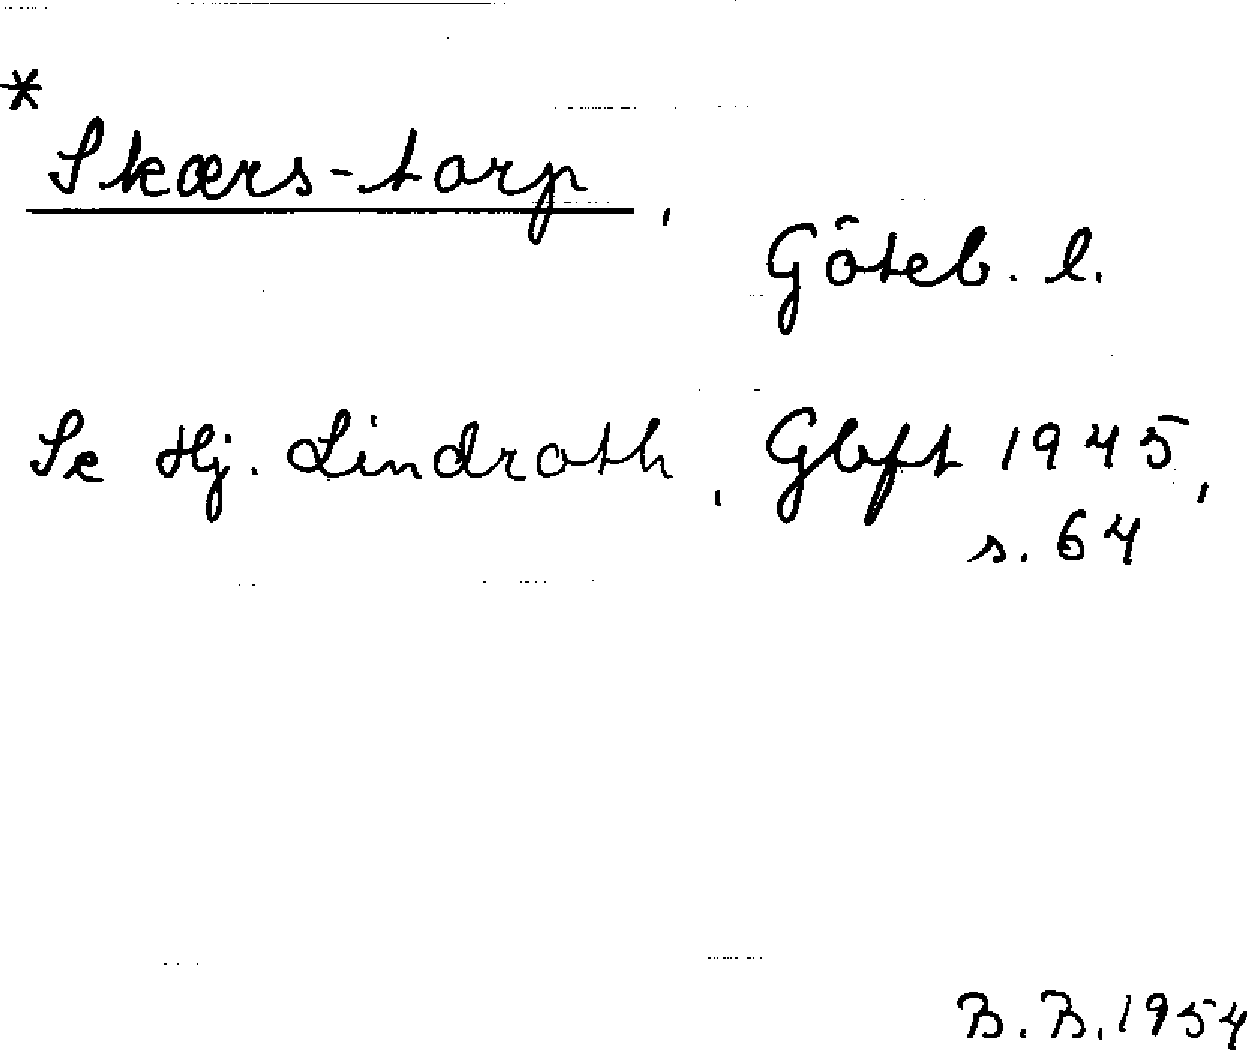 *
Skærs-torp,
Göteb. l.
Se Hj. Lindroth, Gbft 1945,
s. 64
B. B. 1954